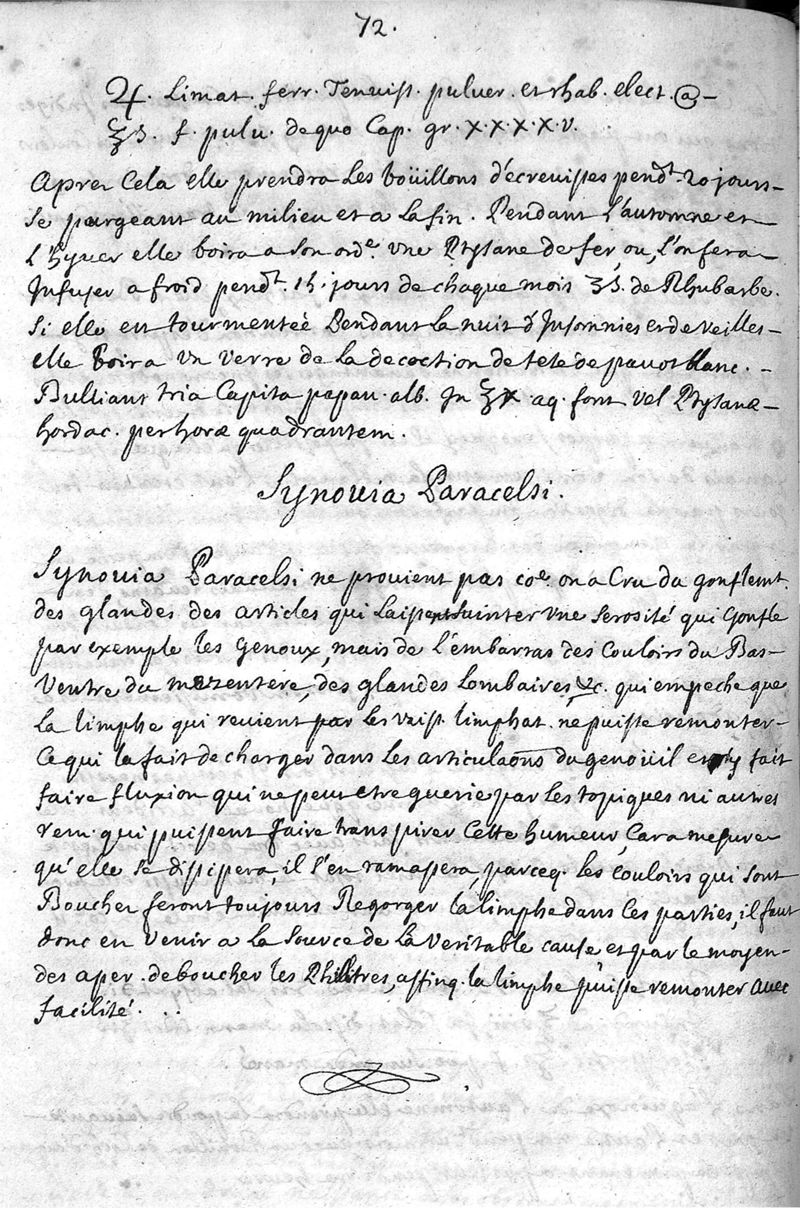 72.
♃. Limat. ferr. Tenuiss. pulver. et rhab. elect. @ –
℥s. f. pulv. de quo Cap. gr. x.x.x.x.v.
Aprez Cela elle prendra Les boüillons d'écrevisses pendt. 20 jours –
Se purgeant au milieu et a La fin. Pendant L'automne et –
L'hyver elle boira a Son orde. Une Ptysane de fer, ou, L'on fera –
Infuser a froid pendt. 15. jours de chaque mois ʒs. de Rhubarbe.
Si elle est tourmenteé Pendant La nuit d'Insomnies et de veilles –
elle boira un verre de La decoction de tete de pavot blanc. –
Bulliant tria Capita papau. alb. In ℥x. aq. font. vel Ptysanæ –
hordac. per horæ quadrantem.
Synovia Paracelsi.
Synovia Paracelsi ne provient pas coe. on a Cru du gonflemt.
des glandes des articles qui Laissent Suinter une Serosité qui Gonfle
par exemple les Genoux, mais de L'embarras des Couloirs du Bas-
Ventre du mezentere, des glandes Lombaires, &c. qui empeche que
La limphe qui revient par Les vaiss. limphat. ne puisse remonter –
Ce qui la fait decharger dans Les articulaõns du genoüil et y fait
faire fluxion qui ne peut etre guerie par Les topiques ni autres
rem. qui puissent faire transpirer Cette humeur, Car a mesure
qu'elle Se dissipera, il S'en ramassera, parceq. les Couloirs qui Sont
Bouchez feront toujours Regorger la limphe dans Ces parties, il faut
donc en venir a La Source de La Veritable cause et par le moyen –
des aper. deboucher les Philtres, affinq. la limphe puisse remonter avec
facilité. . .